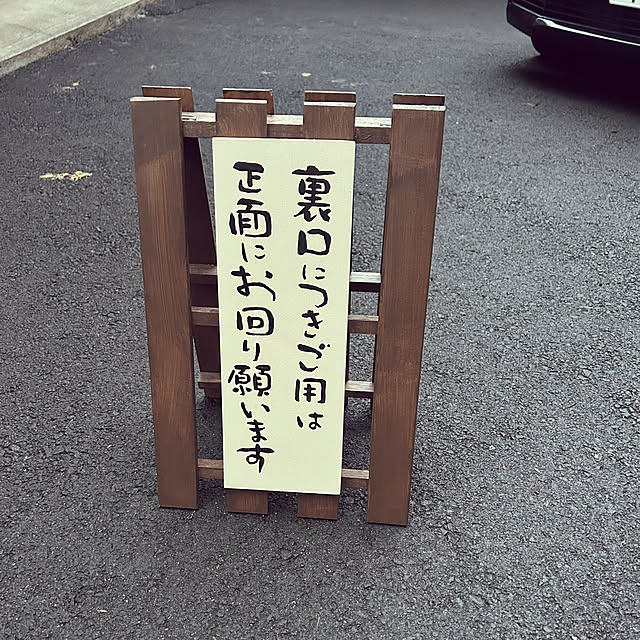 裏口につきご用は
正面にお回り願います